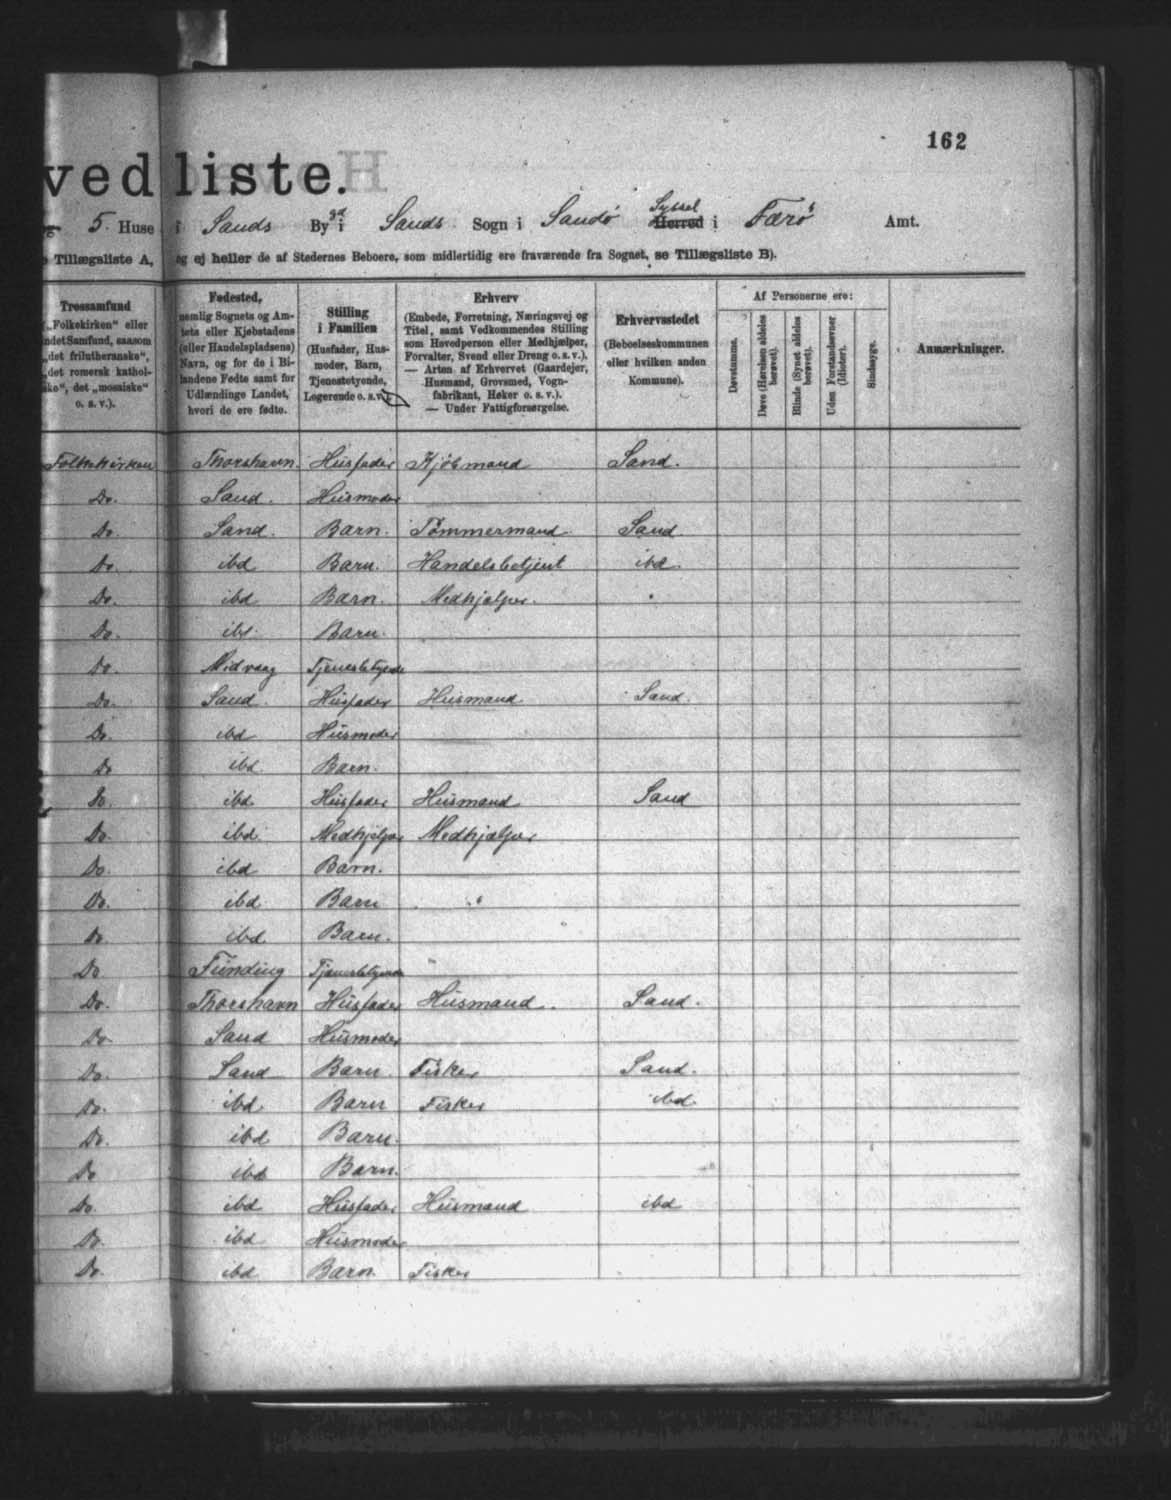 162
vedliste.
5 Huse i Sands Bygd i Sands Sogn i Sandö Syssel Herred i Færö Amt.
Tillægsliste A, og ej heller de af Stedernes Beboere, som midlertidig ere fraværende fra Sognet, se Tillægsliste B).
Trossamfund
„Folkekirken“ eller
ndet Samfund, saasom
„det frilutheranske“,
„det romersk kathol-
ske“, det „mosaiske“
o. s. v.).
Fødested,
nemlig Sognets og Am-
tets eller Kjøbstadens
(eller Handelspladsens)
Navn, og for de i Bi-
landene Fødte samt for
Udlændinge Landet,
hvori de ere fødte.
Stilling
i Familien
(Husfader, Hus-
moder, Barn,
Tjenestetyende,
Logerende o. s. v.).
Erhverv
(Embede, Forretning, Næringsvej og
Titel, samt Vedkommendes Stilling
som Hovedperson eller Medhjælper,
Forvalter, Svend eller Dreng o. s. v.).
— Arten af Erhvervet (Gaardejer,
Husmand, Grovsmed, Vogn-
fabrikant, Høker o. s. v.).
— Under Fattigforsørgelse.
Erhvervsstedet
(Beboelseskommunen
eller hvilken anden
Kommune).
Af Personerne ere:
Døvstumme.
Døve (Hørelsen aldeles
berøvet).
Blinde (Synet aldeles
berøvet).
Uden Forstandsevner
(Idioter).
Sindssyge.
Anmærkninger.
Folkekirken Thorshavn. Husfader Kjöbmand Sand.
Do. Sand. Husmoder
Do. Sand. Barn. Tömmermand Sand
Do. ibd Barn. Handelsbetjent ibd.
Do. ibd Barn. Medhjælper.
Do. ibd. Barn.
Do. Midvaag Tjenestetyende
Do. Sand. Husfader Husmand Sand.
Do. ibd Husmoder
Do ibd. Barn.
Do. ibd. Husfader Husmand Sand
Do. ibd. Medhjælper Medhjælper
Do. ibd Barn.
Do. ibd. Barn
Do ibd. Barn.
Do Funding Tjenestetyende
Do. Thorshavn Husfader Husmand. Sand.
Do Sand Husmoder
Do. Sand Barn. Fisker Sand.
Do. ibd. Barn Fisker ibd.
Do. ibd Barn.
Do ibd Barn.
Do. ibd Husfader Husmand ibd
Do. ibd Husmoder
Do. ibd Barn. Fisker